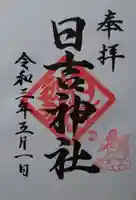 奉拝
日吉神社
令和三年五月一日